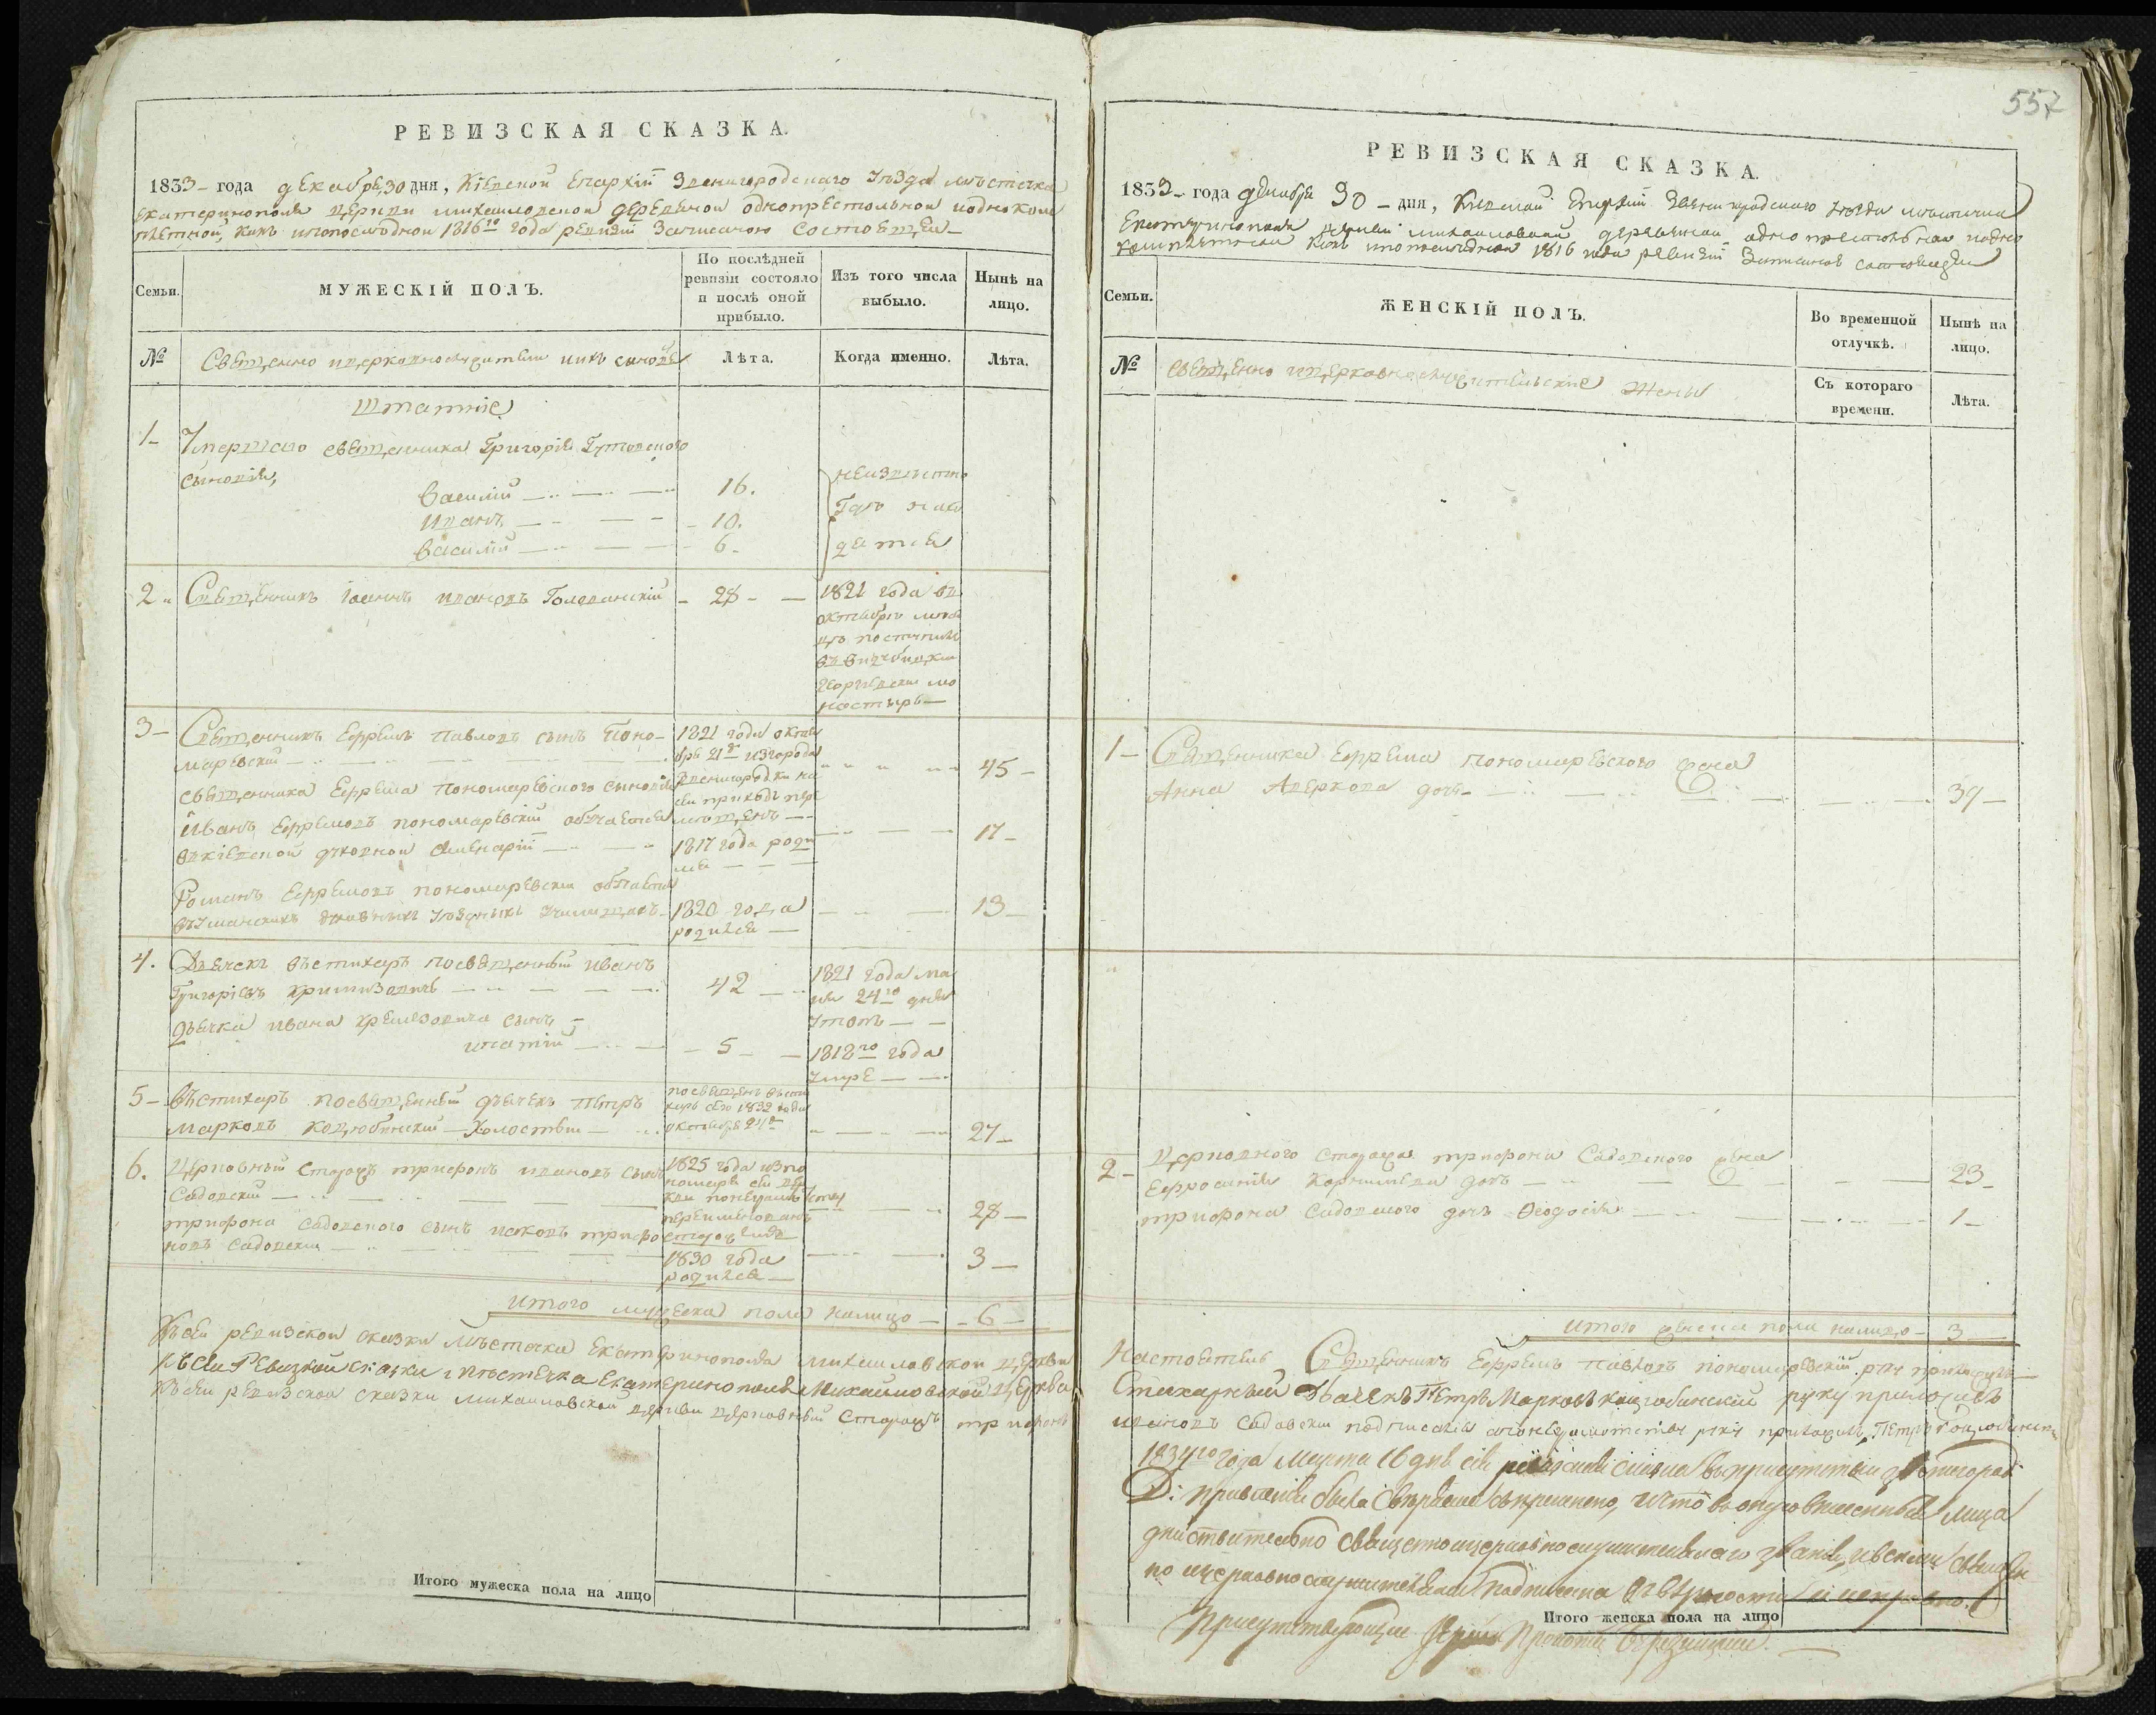 РЕВИЗСКАЯ СКАЗКА.
1833 года декабрѧ 30 дня, Кіевской Епархіи Звенигородскаго уѣзда мѣстечка
Екатеринополя церкви михайловской деревяной однопрестольной
какъ 1816го года ревизіи состоящей
Семьи.
МУЖЕСКІЙ ПОЛЪ.
По послѣдней
ревизіи состояло
и послѣ оной
прибыло.
Изъ того числа
выбыло.
Нынѣ на
лицо.
№
Священно ицерковнослужители ихъ сыновя
Лѣта.
Когда именно.
Лѣта.
Штатніе
1 Умершого священника Григорія Гутовского
сыновія,
Василій 16. неизвѣстно
Иванъ 10. Гдѣ нахо
Василій 6 дятся
2 Священникъ Іоаннъ ивановъ Голованскій 28
1821 года въ
октябрѣ мѣся
цѣ поступилъ
георгіевскій мо
настырь
3 Священникъ Ефремъ Павловъ сынъ Поно-
маревскій
1821 года октя
бря 21 изгорода
Звенигородки на
сей приходъ пере
мѣщенъ
45
священника Ефрема Пономаревского сыновія
Иванъ Ефремовъ пономаревскій обучается
вкіевской духовной семенаріи
1817 года роди
лся
17
Романъ Ефремовъ пономаревскій обучается
въуманскихъ духовныхъ уѣздныхъ училищахъ
1820 года
родился
13
4. Дьячекъ въстихарь посвященный Иванъ
Григоріевъ Хримизовичъ 42
1821 года ма
ія 24го дня
дьячка ивана хремезовича сынъ
игнатій 5
1818го года
умре
5 Въстихарь посвященный дьячекъ Петръ
Марковъ Коцюбинскій Холостый
посвященъ въсти
харь 1832 года
октября
27
6. Церковный Сторожъ трифонъ ивановъ сынъ
Садовскій
1825 года изпо
номаря сей цер
кви
переименованъ
сторожемъ
28
трифона садовского сынъ яковъ трифо
новъ Садовскій
1830 года
родился
3
Итого мужеска пола налицо 6
Къ сей ревизской сказки мѣстечка Екатеринополя михайловской церкви
Къ сей Ревизкой скаски мѣстечка Екатеринополя Михайловской Церкви
Къ сей ревизской сказки михайловской церкви церковный Сторожъ трифонъ
Итого мужеска пола на лицо
557
РЕВИЗСКАЯ СКАЗКА.
1833 года декабря 30 дня, Кіевской Епархіи Звенигородского уѣзда мѣстечка
Екатеринополя церкви михайловской деревянной однопрестольной
какъ 1816 года ревизіи состоящей
Семьи.
ЖЕНСКІЙ ПОЛЪ.
Во временной
отлучкѣ.
Нынѣ на
лицо.
№
Священно ицерковнослужительскіе Жены
Съ котораго
времени.
Лѣта.
1 Священника Ефрема пономаревского жена
Анна Аверкова дочь 39
2 Церковного сторожа трифона Садовского жена
Ефросинія Корнилѣва дочь 23
трифона Садовского дочь Ѳеодосія 1
Итого женска пола налицо 3
Настоятель Священникъ Ефремъ Павловъ пономаревскій руку приложилъ
Стихарный Дьячекъ Петръ Марковъ Коцюбинскій руку приложилъ
ивановъ Садовскій руку приложилъ Петръ Коцюбинскій
1834го года Марта 16 дня сія ревизская сказка въ присутствіи
Д: Правленія была и что въ оную внесенныя лица
дѣйствительно священно церковнослужительскаго званія,
но церковнослужителями подписана въ вѣрности и исправно.
Итого женска пола на лицо
Присутствующій Іерей